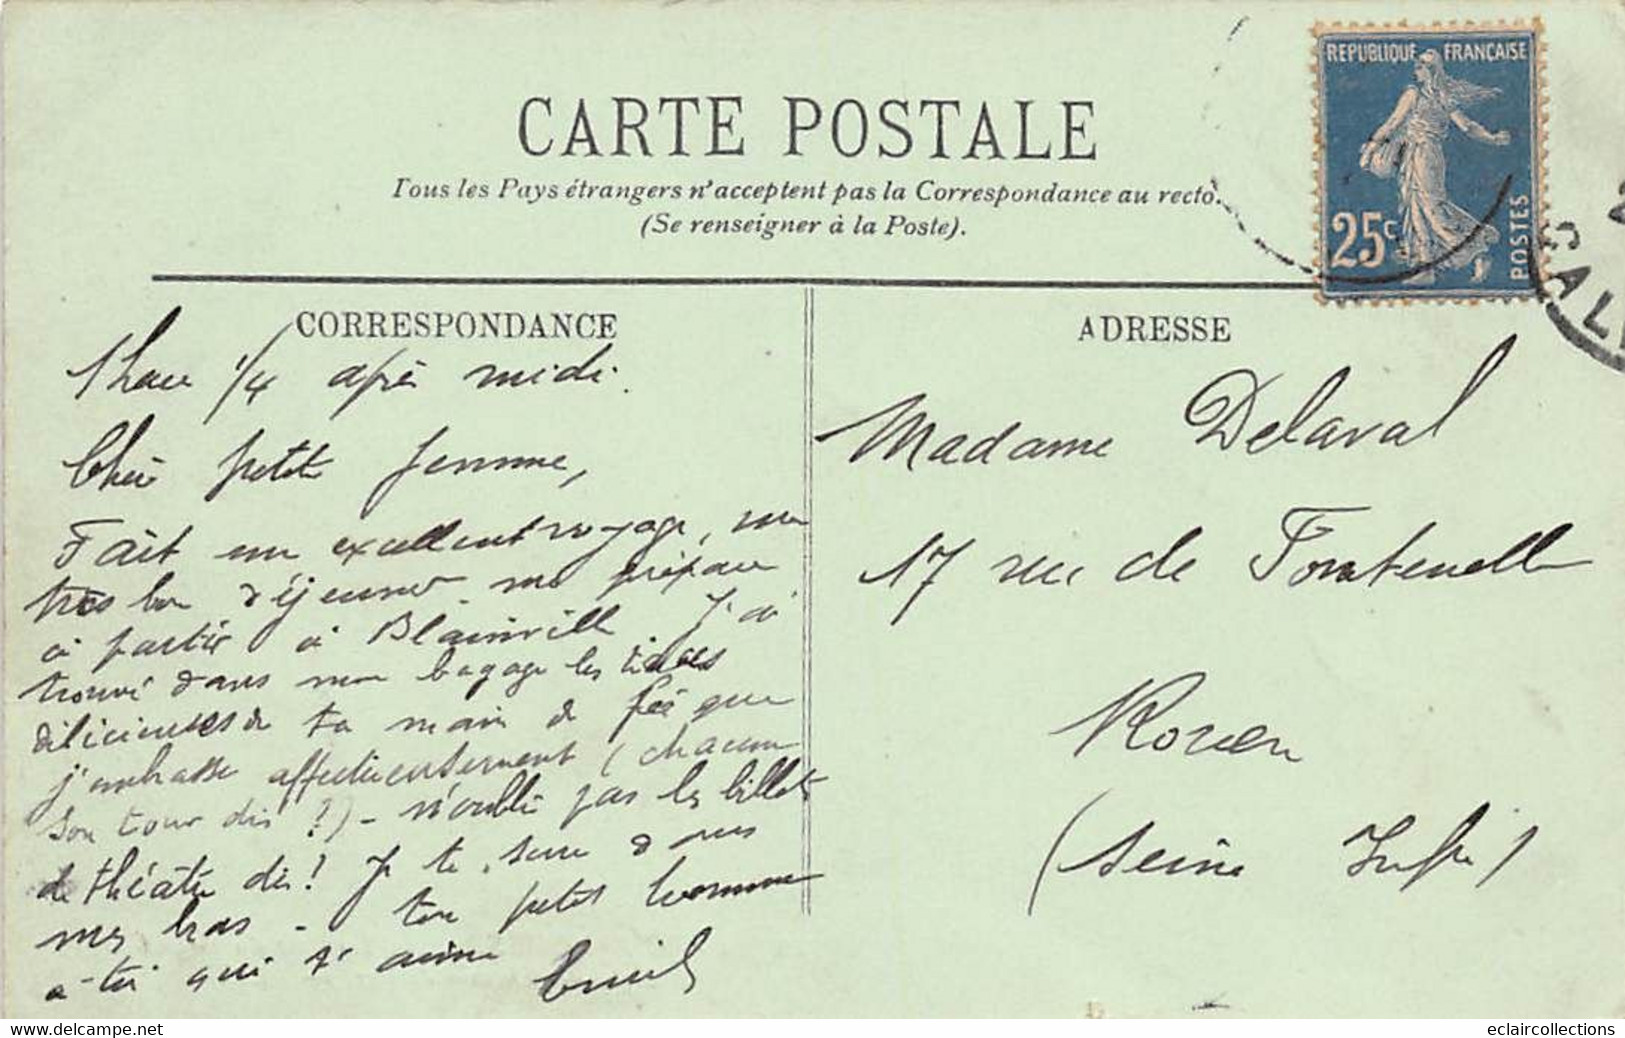 REPUBLIQUE FRANÇAISE
25c
POSTES
CALV
CARTE POSTALE
Tous les Pays étrangers n'acceptent pas la Correspondance au recto.
(Se renseigner à la Poste).
CORRESPONDANCE
1 heure 1/4 après midi.
Chère petite femme,
Fait un excellent voyage, un
très bon déjeuner me prépare
à partir à Blainville J'ai
trouvé dans mon bagage les
délicieuses de ta main de fée que
j'embrasse affectueusement (chacun
son tour dis ?) - N'oublie pas les billets
de théâtre dis ! Je te serre dans
mes bras - ton petit homme
à-toi qui t'aime
Emile
ADRESSE
Madame Delaval
17 rue de Fontenelle
Rouen
(Seine Infre)
eclaircollections